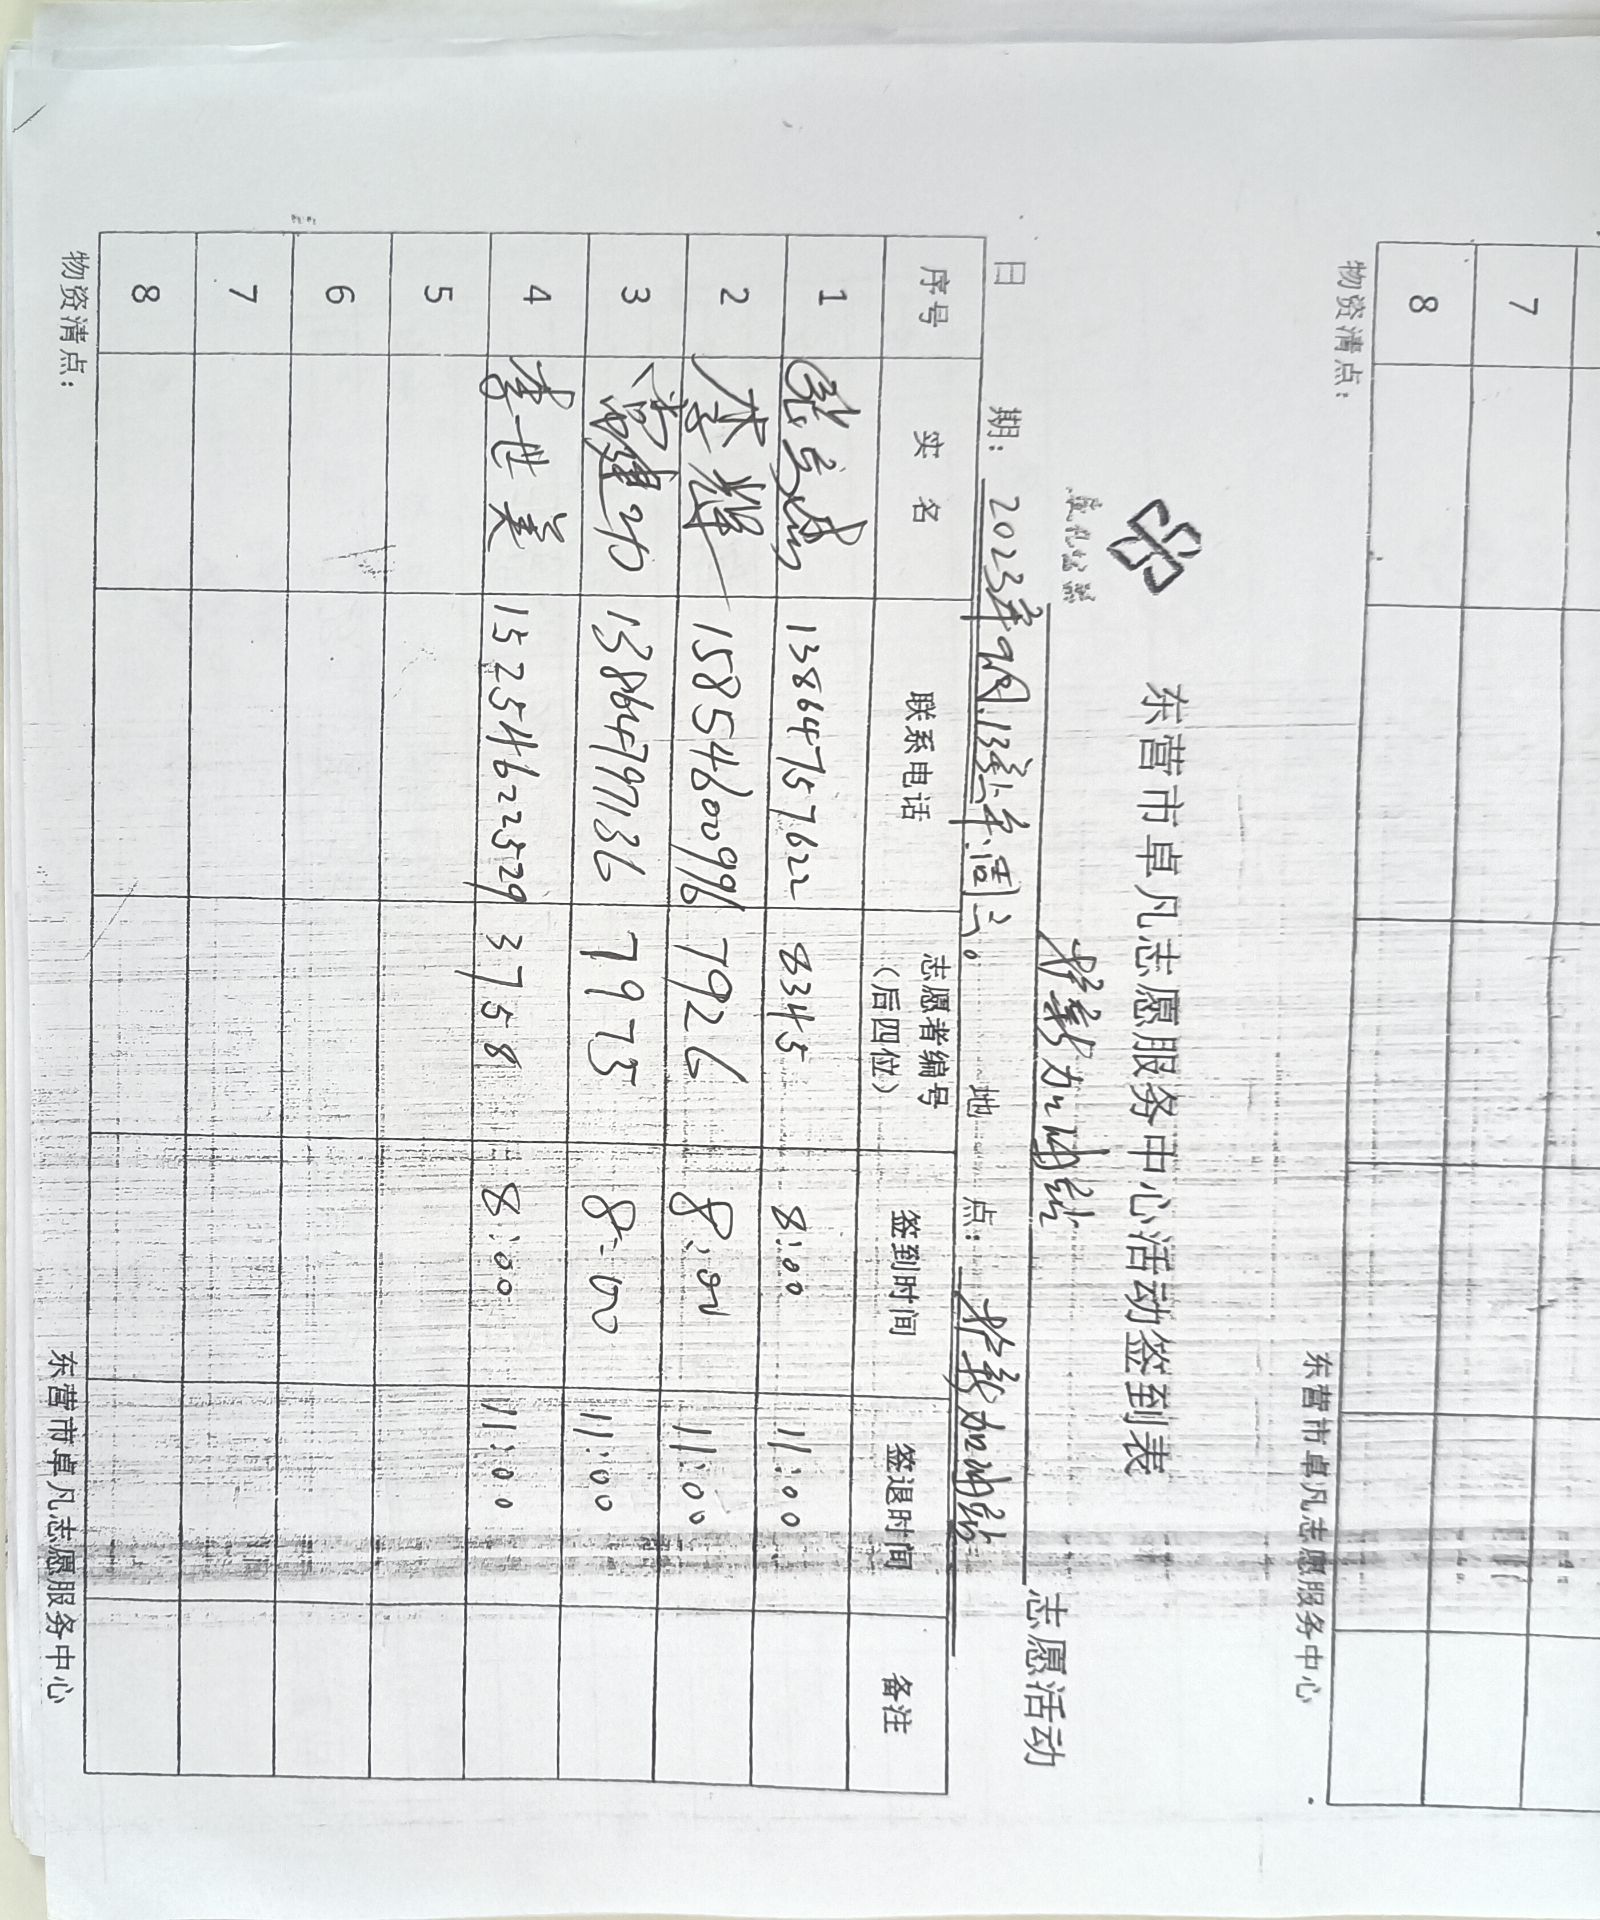 7
8
物资清点：
东营市卓凡志愿服务中心
东营市卓凡志愿服务中心活动签到表
加油站 志愿活动
日 期： 2023年9月13 周三。 地 点： 加油站
序号 实 名 联系电话 志愿者编号（后四位） 签到时间 签退时间 备注
1 13864757622 8345 8:00 11:00
2 李辉 15854600996 7926 8:00 11:00
3 常建功 13864797136 7975 8:00 11:00
4 李世美 15254622529 3758 8:00 11:00
5
6
7
8
物资清点：
东营市卓凡志愿服务中心